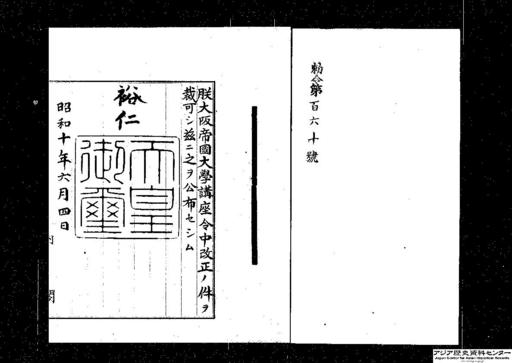 勅令第百六十號
朕大阪帝國大學講座令中改正ノ件ヲ
裁可シ茲ニ之ヲ公布セシム
裕仁
天皇御璽
昭和十年六月四日
アジア歴史資料センター
Japan Center for Asian Historical Records